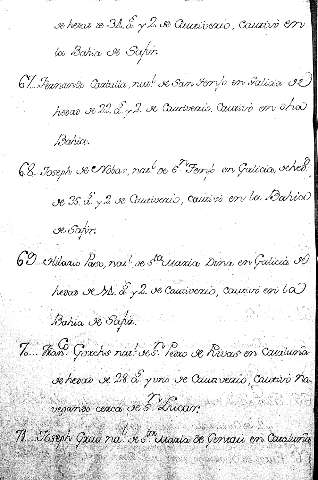 de hedad de 32 a.s y 2 de Cautiverio, cautivo en
la Bahia de Safin.
67. Fernando Castilla, nat.l de San en Galicia de
hedad de 22 a.s y 2 de Cautiverio, Cautivo en dha
Bahia.
68. Joseph de Nobas, nat.l de S.n en Galicia, de hed.d
de 35 a.s y 2 de Cautiverio, cautivo en la Bahia
de Safin.
69 Hilario Paso, nat.l de S.ta Maria en Galicia de
hedad de a.s y 2 de cautiverio, cautivo en la
Bahia de Safin.
70... Fran.co nat.l de S.n Pedro de Rivas en Cataluña
de hedad de 28 a.s y uno de Cautiverio, Cautivo na
vegando cerca de S.n Lucar.
71. Joseph Grau nat.l de S.ta Maria de en Cataluña